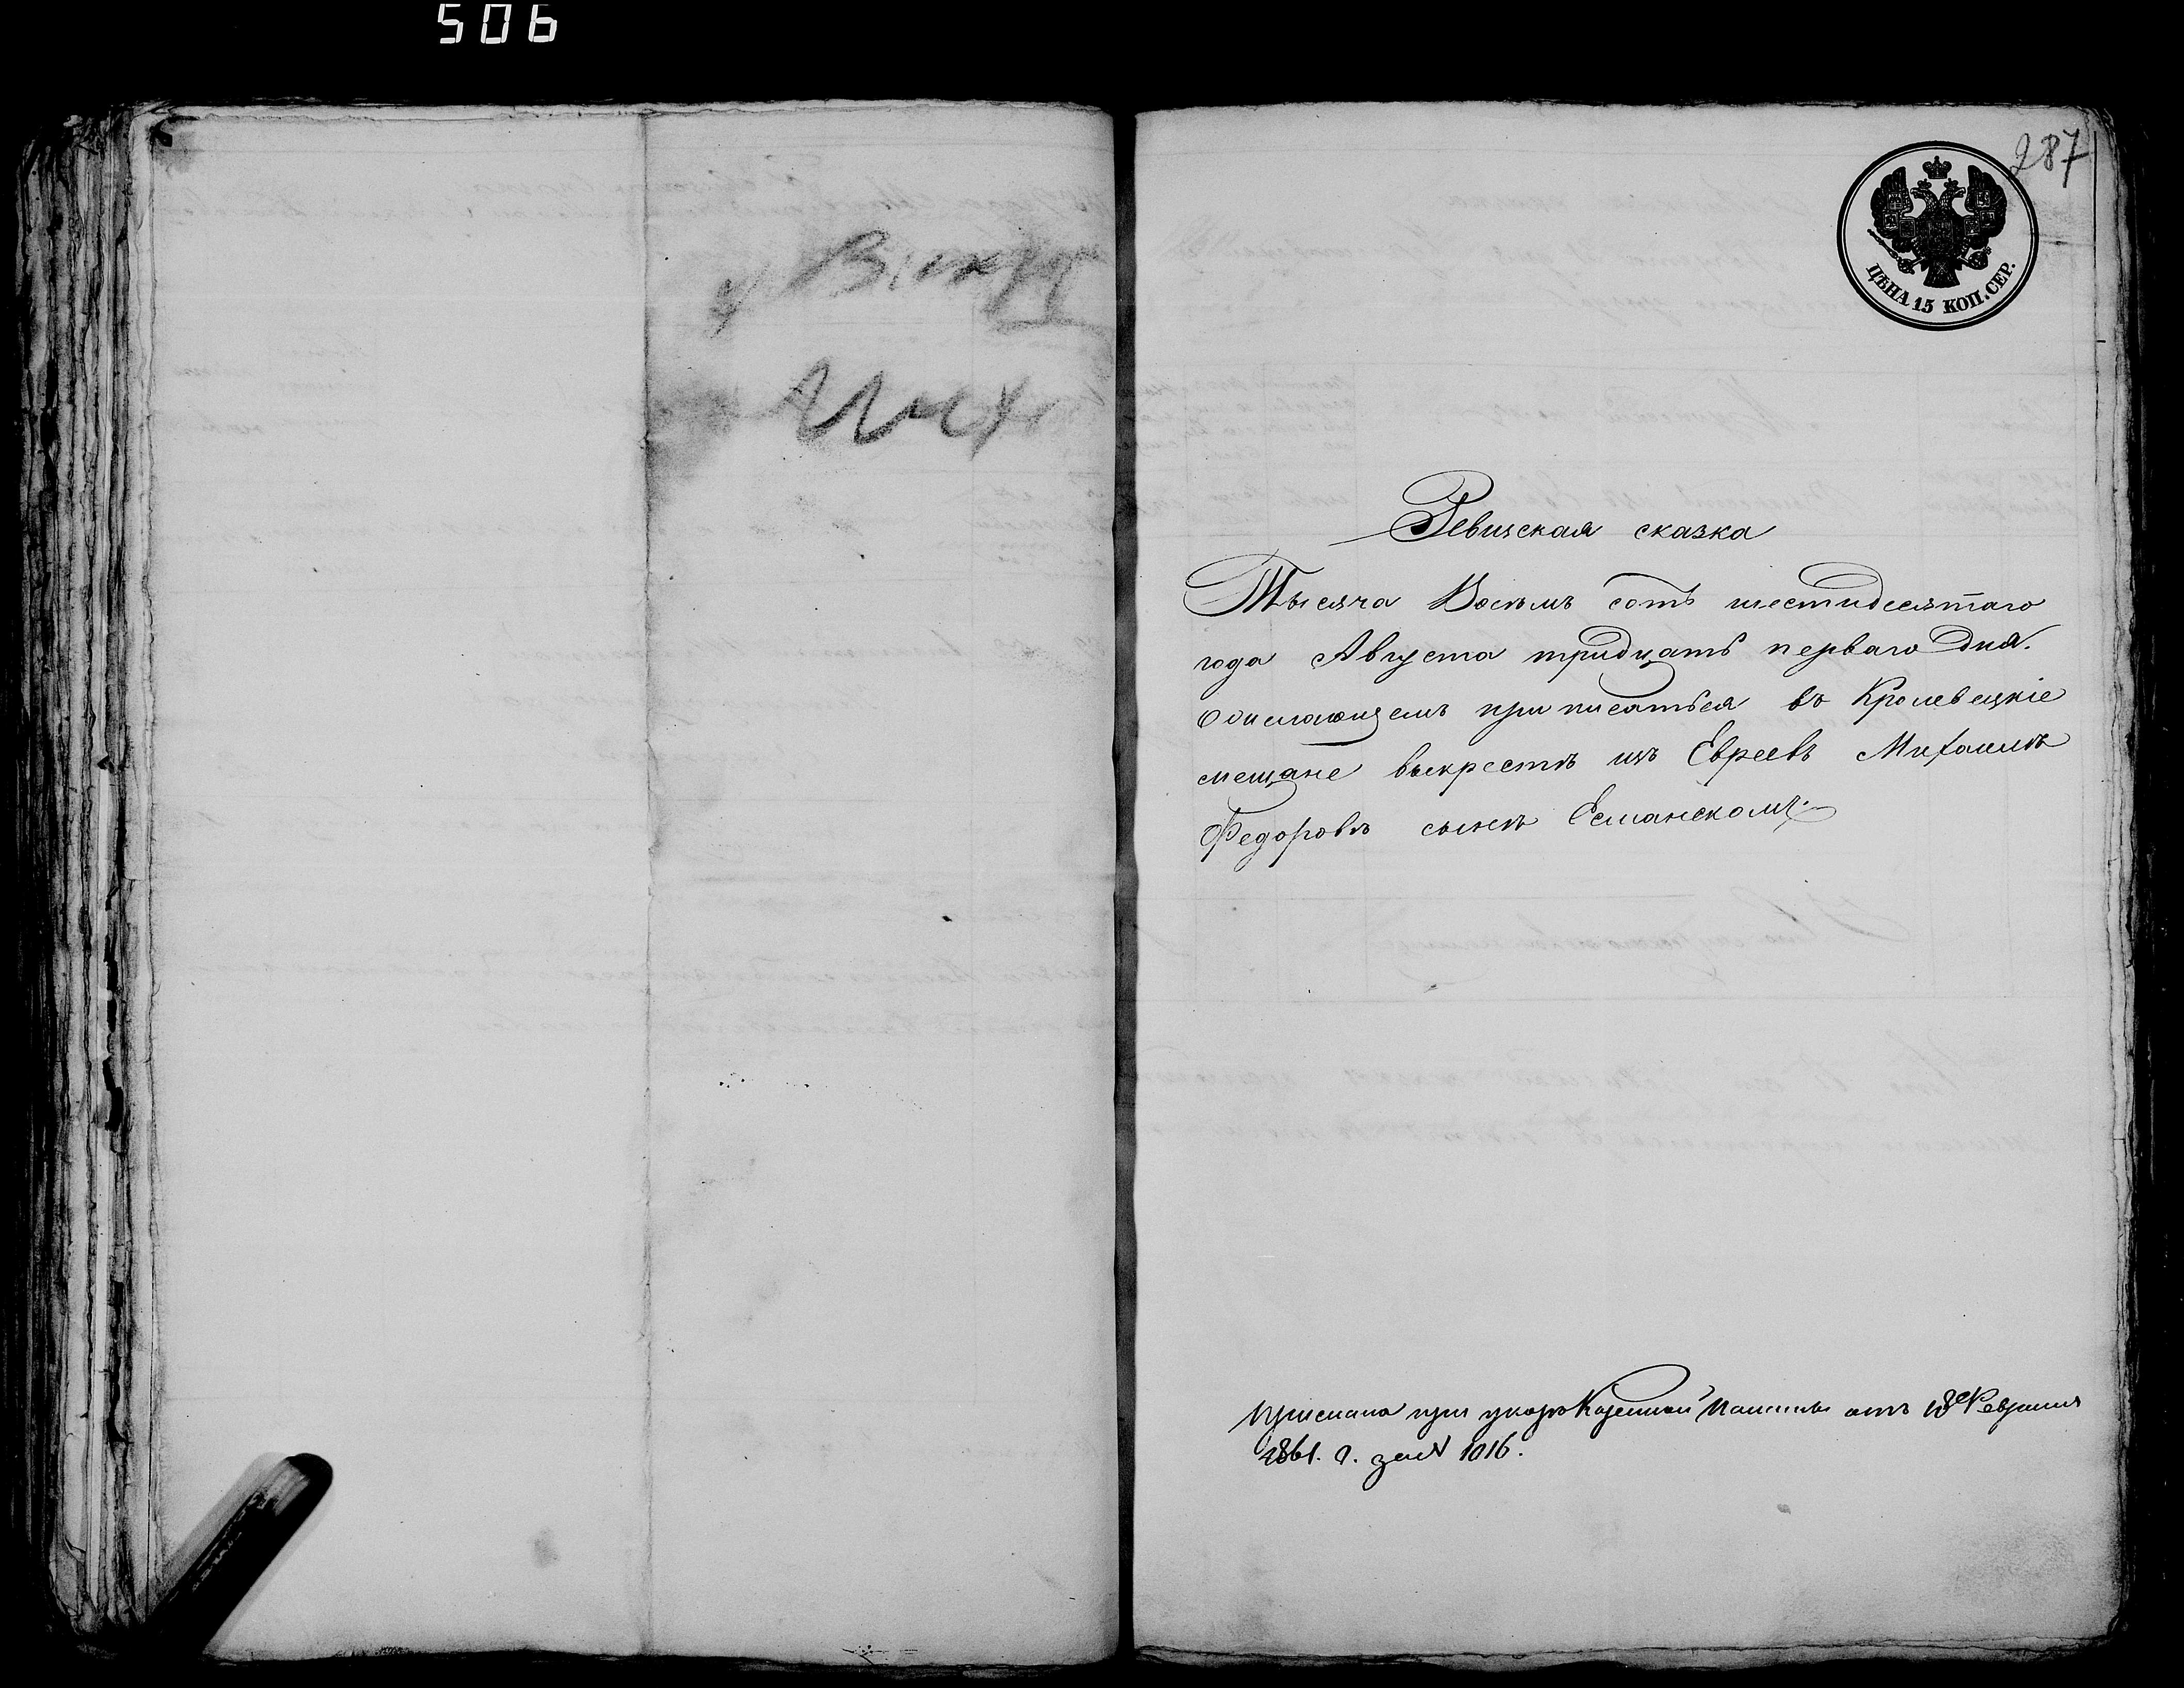 506
287
ЦѢНА 15 КОП. СЕР.
Ревизская сказка
Тысяча Восемъ сотъ шестидесятаго
года Августа тридцать перваго дня.
О желающемъ приписаться въ Кролевецкіе
мещане выкрестѣ изъ Евреевъ Михаилѣ
Федоровѣ сынѣ Есманскомъ.
Прислана при указѣ Казенной Палаты отъ 18 Февраля
1861. г. за № 1016.